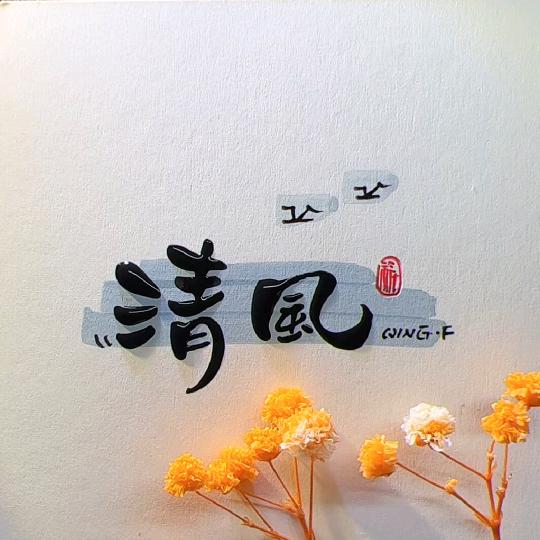 清風
WING·F